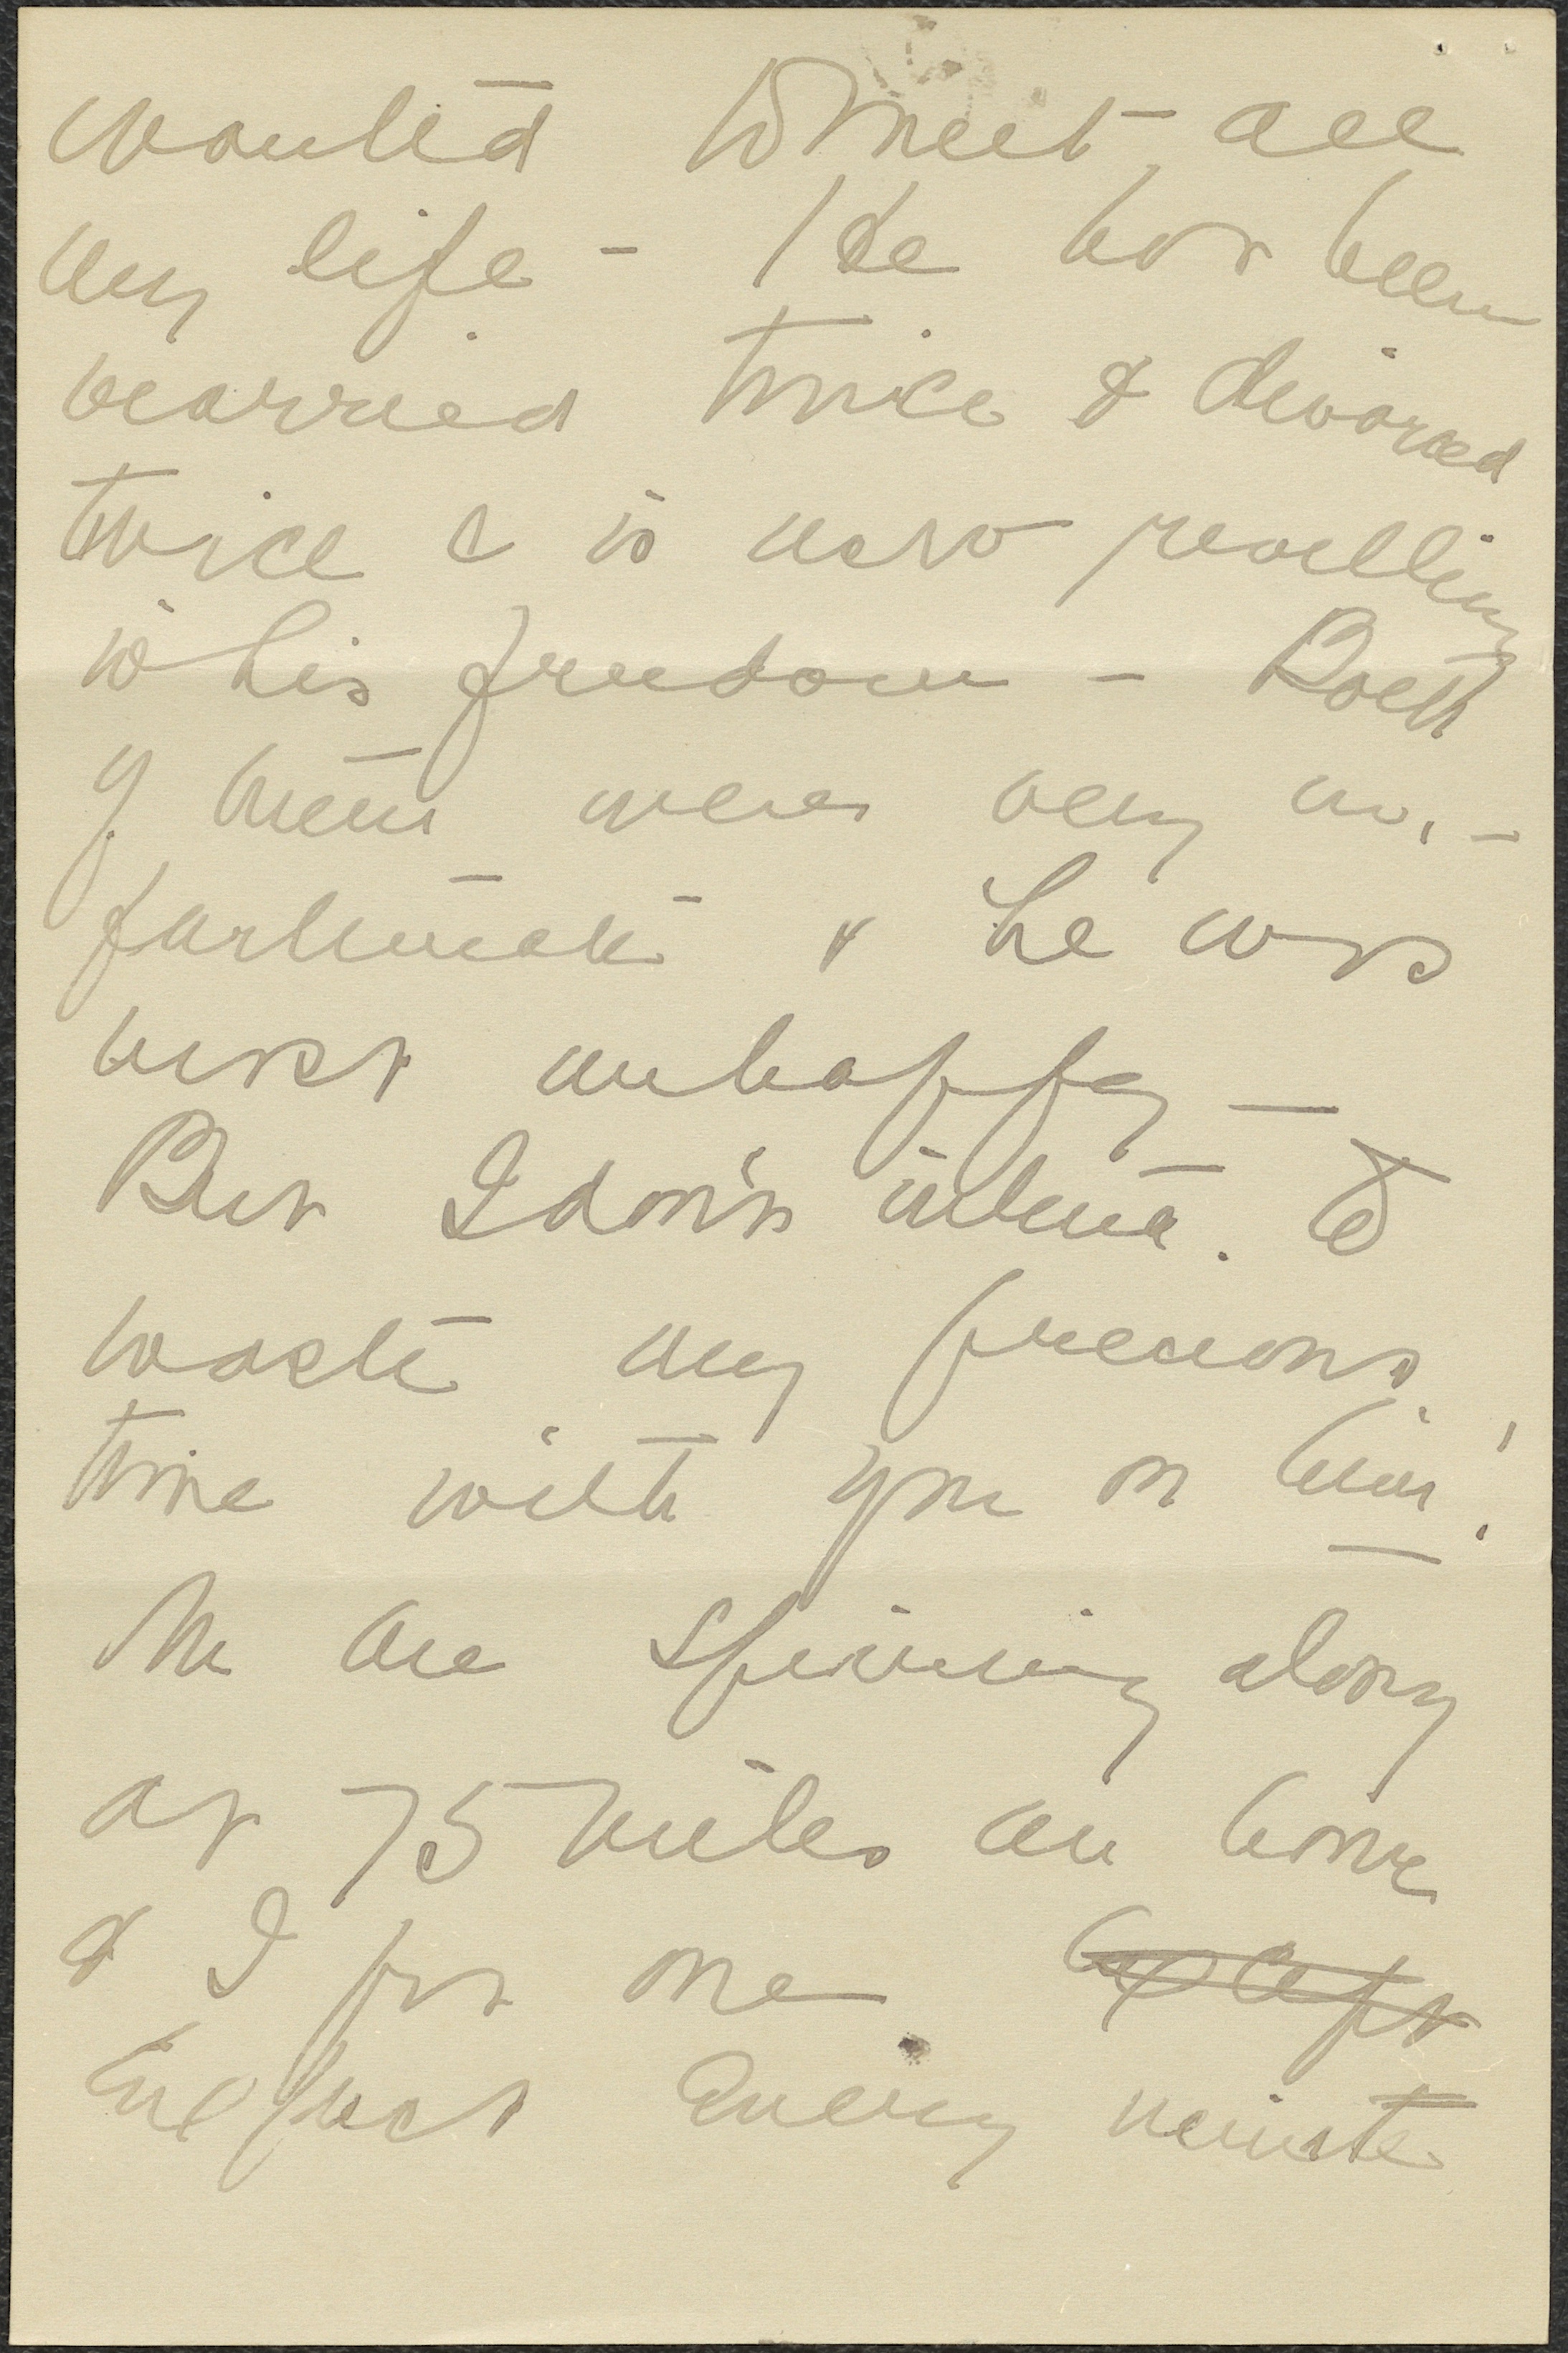 wanted to meet all
my life - He has been
married twice & divorced
twice & is now revelling
in his freedom - Both
of them were very un-
fortunate & he was
most unhappy —
But I don't intend to
waste my precious
time with you on him!
We are spinning along
at 75 miles an hour
& I for one
expect every minute